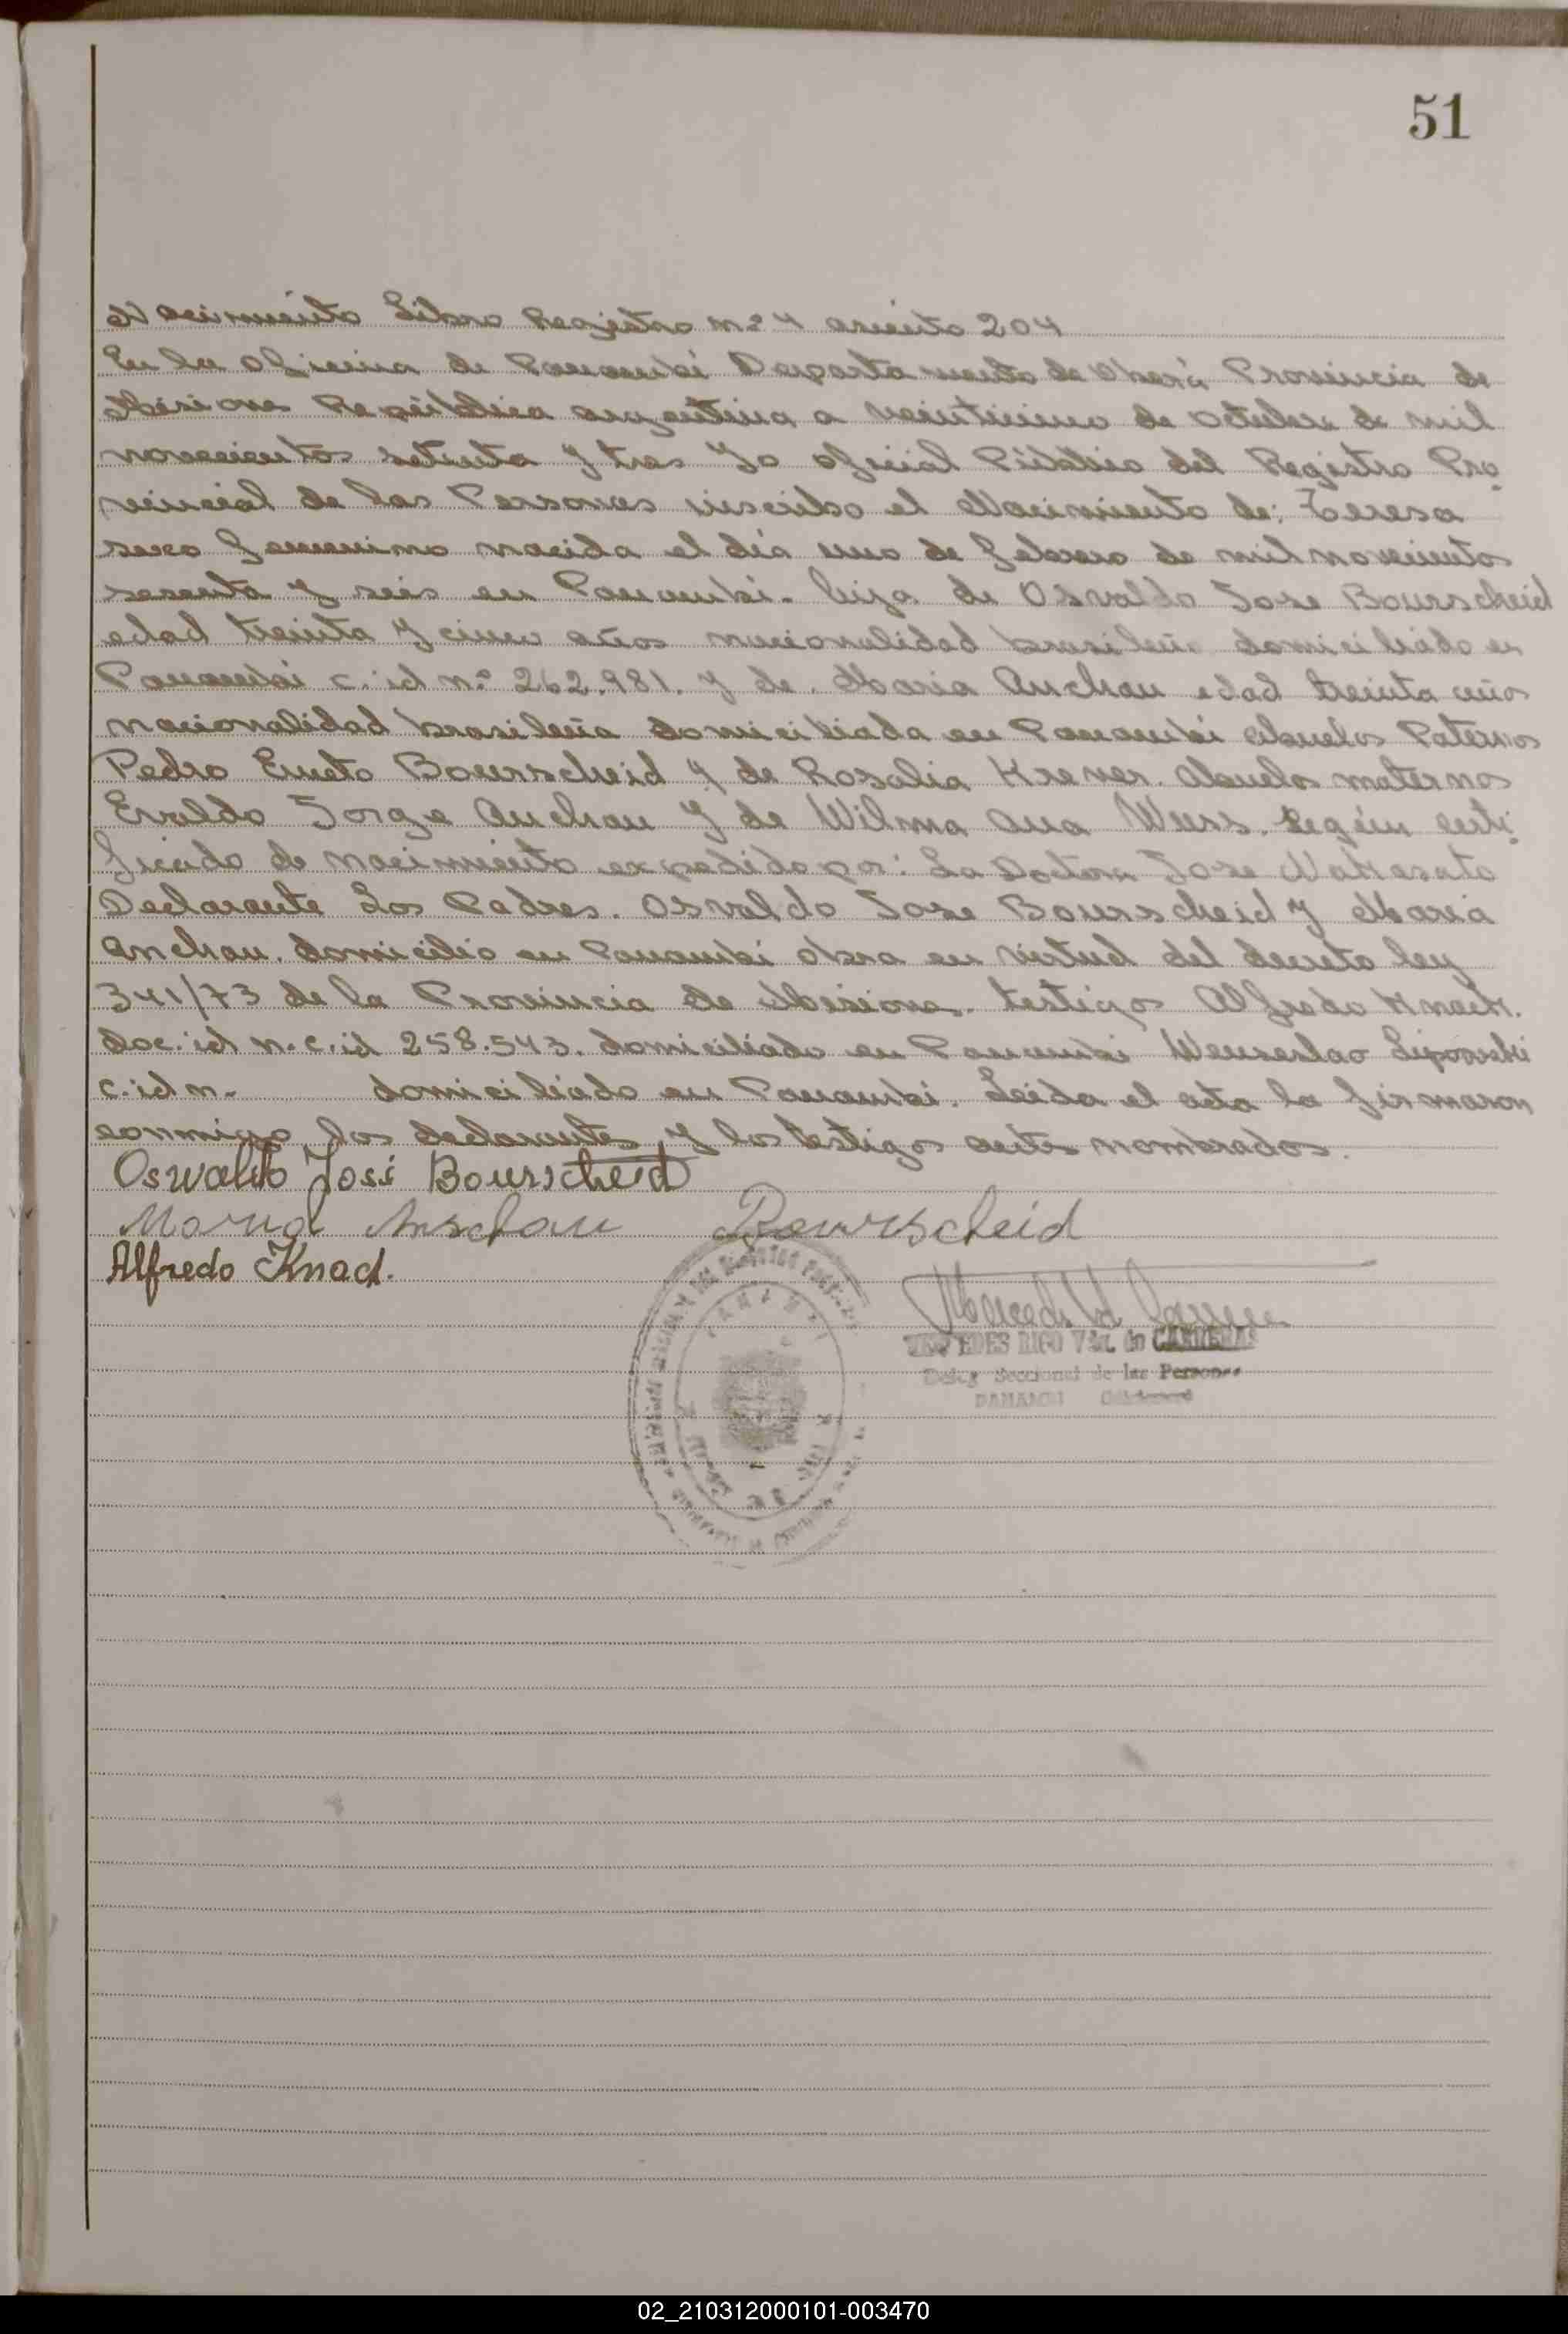 51
Nacimiento Libro Registro n.º 4 asiento 204
En la oficina de Panambí Departamento de Oberá Provincia de
Misiones República argentina a veinticinco de octubre de mil
novecientos setenta y tres Yo oficial Público del Registro Pro
vincial de las Personas inscribo el Nacimiento de: Teresa
sexo femenino nacida el día uno de febrero de mil novecientos
sesenta y seis en Panambí. hija de Osvaldo Jose Bourscheid
edad treinta y cinco años nacionalidad brasileña domiciliado en
Panambí c. id n.º 262.981. y de Maria Anchau edad treinta años
nacionalidad brasileña domiciliada en Panambí abuelos Paternos
Pedro Bourscheid y de Rosalia Krever. abuelos maternos
Evaldo Jorge Anchau y de Wilma Ana. según certi
ficado de nacimiento expedido por: La Doctora Jose
Declarante Los Padres. Osvaldo Jose Bourscheid y Maria
Anchau. domicilio en Panambí obra en virtud del decreto ley
341/73 de la Provincia de Misiones. testigos Alfredo Knack.
doc. id n. c. id 258.543. domiciliado en Panambí Wenseslao
c. id n. domiciliado en Panambí. Leida el acta la firmaron
conmigo los declarantes y los testigos antes nombrados.
Oswaldo José Bourscheid
Maria Anschau Bourscheid
Alfredo Knack.
MERCEDES RIGO Vda. de CARRERAS
Deleg Seccional de las Personas
PANAMBI
02_210312000101-003470